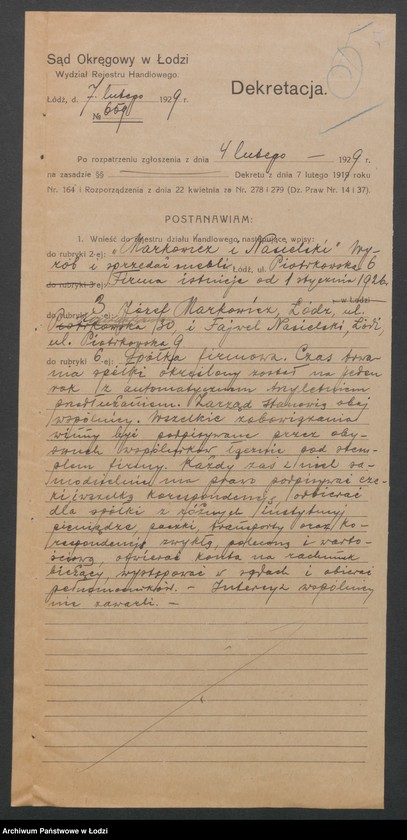 Sąd Okręgowy w Łodzi
Wydział Rejestru Handlowego.
Łódź, d. 7 lutego 1929 r.
№ 659
Dekretacja.
Po rozpatrzeniu zgłoszenia z dnia 4 lutego — 1929 r.
na zasadzie §§ Dekretu z dnia 7 lutego 1919 roku
Nr. 164 i Rozporządzenia z dnia 22 kwietnia za Nr. 278 i 279 (Dz. Praw Nr. 14 i 37).
POSTANAWIAM:
1. Wnieść do rejestru działu handlowego następujące wpisy:
do rubryki 2-ej: "Markowicz i Nasielski" Wy-
rób i sprzedaż mebli Łódź, ul. Piotrkowska 6
do rubryki 3-ej: Firma istnieje od 1 stycznia 1926.
w Łodzi
do 3. Józef Markowicz, Łódź, ul.
Piotrkowska 30, i Fajwel Nasielski, Łódź,
ul. Piotrkowska 9
do rubryki 6-ej: Spółka firmowa. Czas trwa-
nia spółki określony został na jeden
rok z automatycznem
przedłużaniem. Zarząd stanowią obaj
wspólnicy. Wszelkie zobowiązania
winny być podpisywane przez oby-
dwuch wspólników łącznie pod stem-
plem firmy. Każdy zaś z nich sa-
modzielnie ma prawo podpisywać cze-
ki, wszelką korespondencję, odbierać
dla spółki z różnych instytucyj
pieniądze, paczki, transporty oraz ko-
respondencję zwykłą, poleconą i warto-
ściową, otwierać konta na rachunk
bieżący, występować w sądach i obierać
pełnomocników. — Intercyz wspólnicy
nie zawarli. —
Archiwum Państwowe w Łodzi